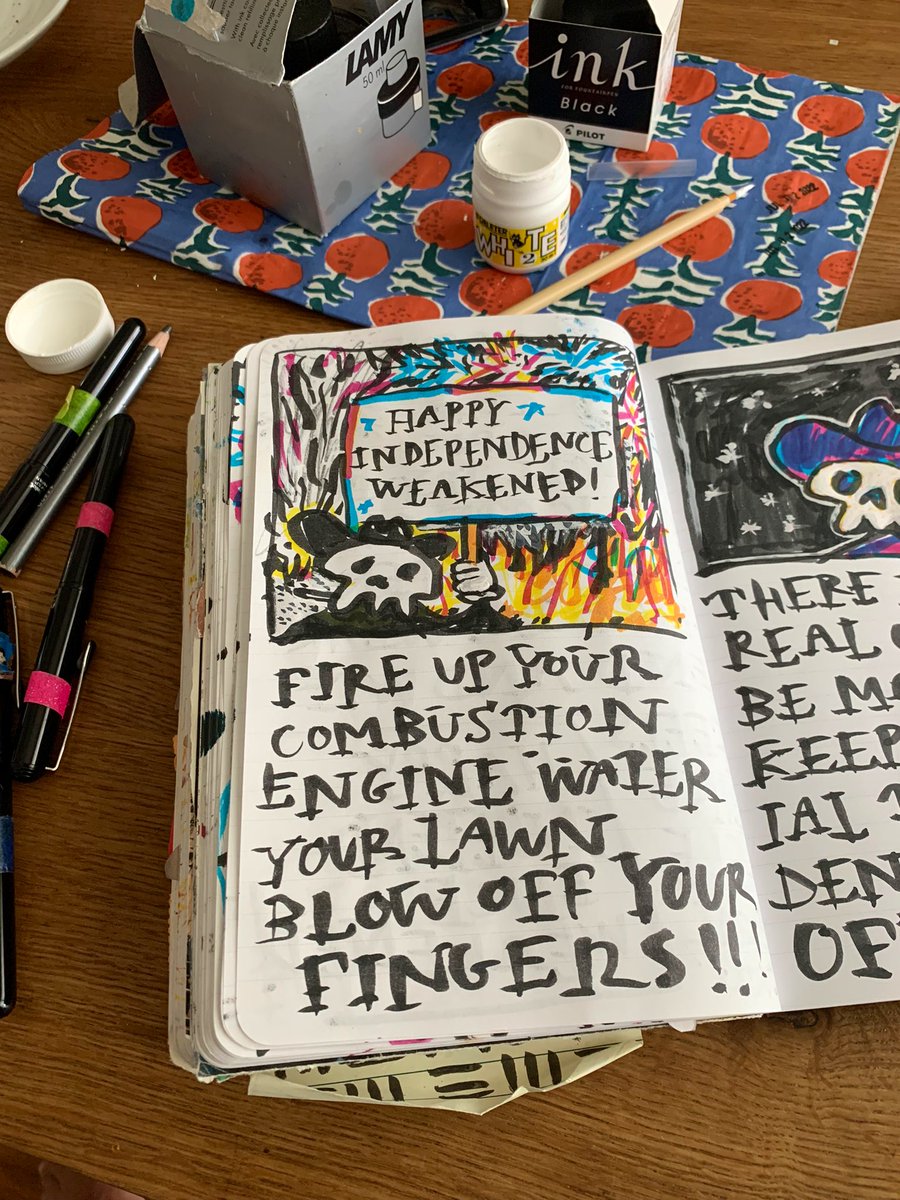 LAMY
50 ml
ink
FOR FOUNTAIN PEN
Black
PILOT
WHITE
2
HAPPY
INDEPENDENCE
WEAKENED!
FIRE UP YOUR
COMBUSTION
ENGINE WATER
YOUR LAWN
BLOW OFF YOUR
FINGERS!!!
THERE
REAL
BE
KEEP
IAL
DEN
OF